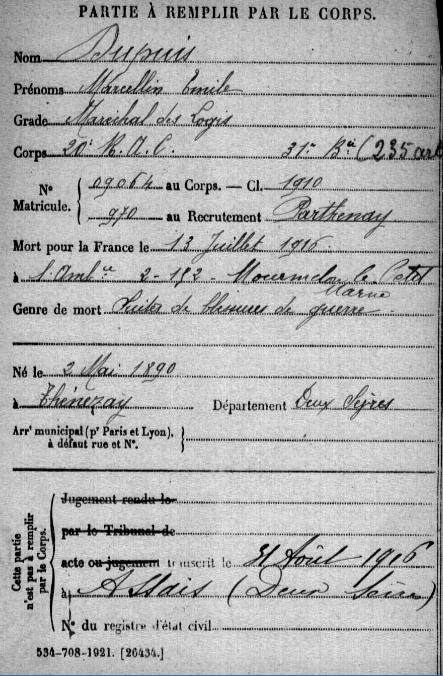 PARTIE À REMPLIR PAR LE CORPS.
Nom Dupuis
Prénoms Marcellin Emile
Grade Maréchal des Logis
Corps 20e R. A. C. 31e Bie (235 art
N° Matricule. { 09064 au Corps. — Cl. 1910
970 au Recrutement Parthenay
Mort pour la France le 13 Juillet 1916
à l'Ambce 2-1/2 - Mourmelon le Petit
Marne
Genre de mort Suites de blessures de guerre
Né le 2 Mai 1890
à Thénezay Département Deux Sèvres
Arrt municipal (pr Paris et Lyon), à défaut rue et N°. }
Cette partie n'est pas à remplir par le Corps.
Jugement rendu le
par le Tribunal de
acte ou jugement transcrit le 31 Août 1916
à Assais (Deux Sèvres)
N° du registre d'état civil
534-708-1921. [26434.]